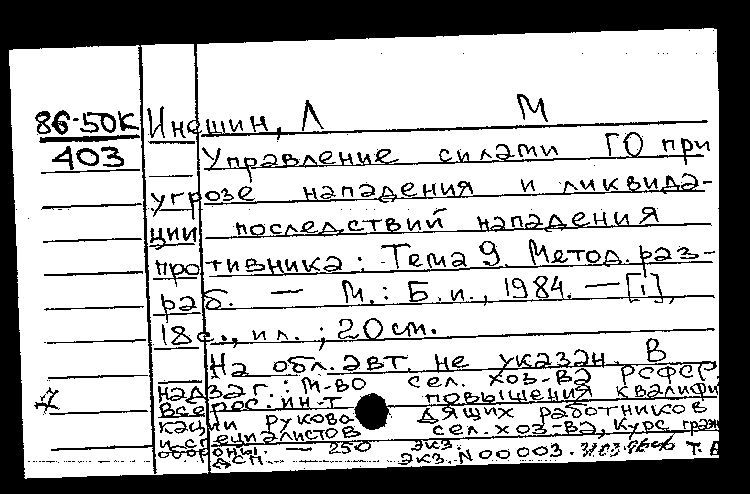 86-50К Инешин, Л М
403 Управление силами ГО при
угрозе нападения и ликвида-
ции последствий нападения
противника: Тема 9. Метод. раз-
раб. — М.: Б.и., 1984. — [1],
18с., ил.; 20 см.
На обл. авт. не указан. В
надзаг.: М-во сел. хоз-ва РСФСР.
Всерос. ин-т повышения квалифи
кации руково дящих работников
и специалистов сел. хоз-ва, Курс граж
обороны. — 250 экз.
ДСП. Экз. N 00003.